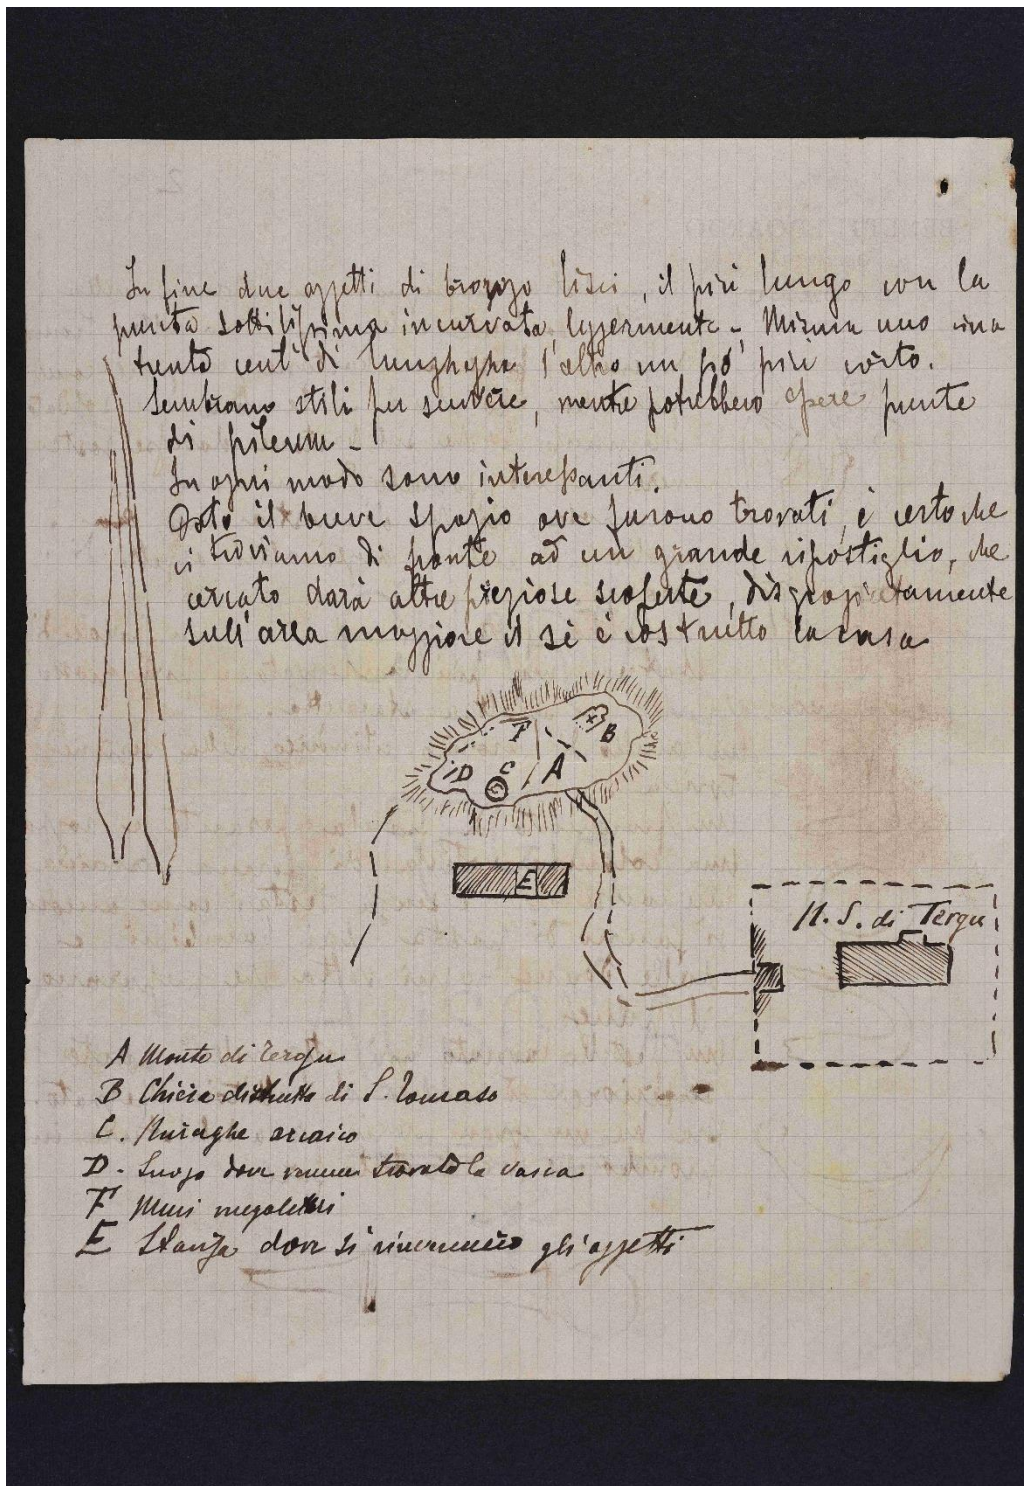 In fine due oggetti di bronzo lisci, il più lungo con la
punta sottilissima incurvata leggermente - Misura uno circa
trenta cent' di lunghezza l'altro un po' più corto.
Sembrano stili per scrivere, mentre potrebbero essere punte
di pileum -
In ogni modo sono interessanti.
Dato il breve spazio ove furono trovati, è certo che
ci troviamo di fronte ad un grande ripostiglio, che
cercato darà altre preziose scoperte, disgraziatamente
sull'area maggiore si è costruitto la casa
F
B
D
C
A
E
N. S. di Tergu
A Monte di Tergu
B Chiesa distrutta di S. Tomaso
C. Nuraghe arcaico
D - Luogo dove venne trovato la vasca
F Muri megalitici
E Stanza dove si rinvennero gli oggetti